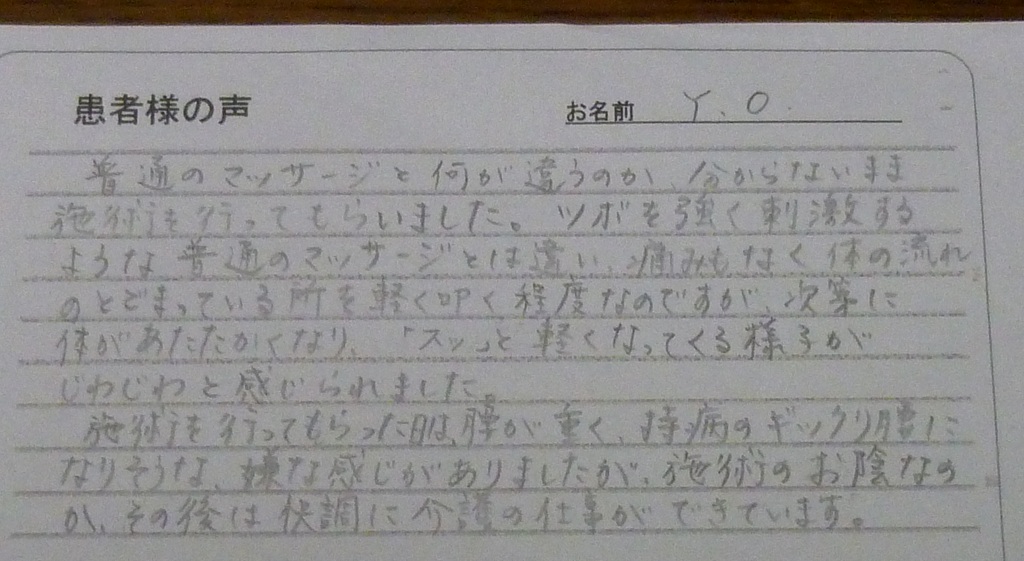 患者様の声
お名前 Y.O.
普通のマッサージと何が違うのか、分からないまま
施術を行ってもらいました。ツボを強く刺激する
ような普通のマッサージとは違い、痛みもなく体の流れ
のとどまっている所を軽く叩く程度なのですが、次第に
体があたたかくなり、「スッ」と軽くなってくる様子が
じわじわと感じられました。
施術を行ってもらった日は、腰が重く、持病のギックリ腰に
なりそうな、嫌な感じがありましたが、施術のお陰なの
か、その後は快調に介護の仕事ができています。